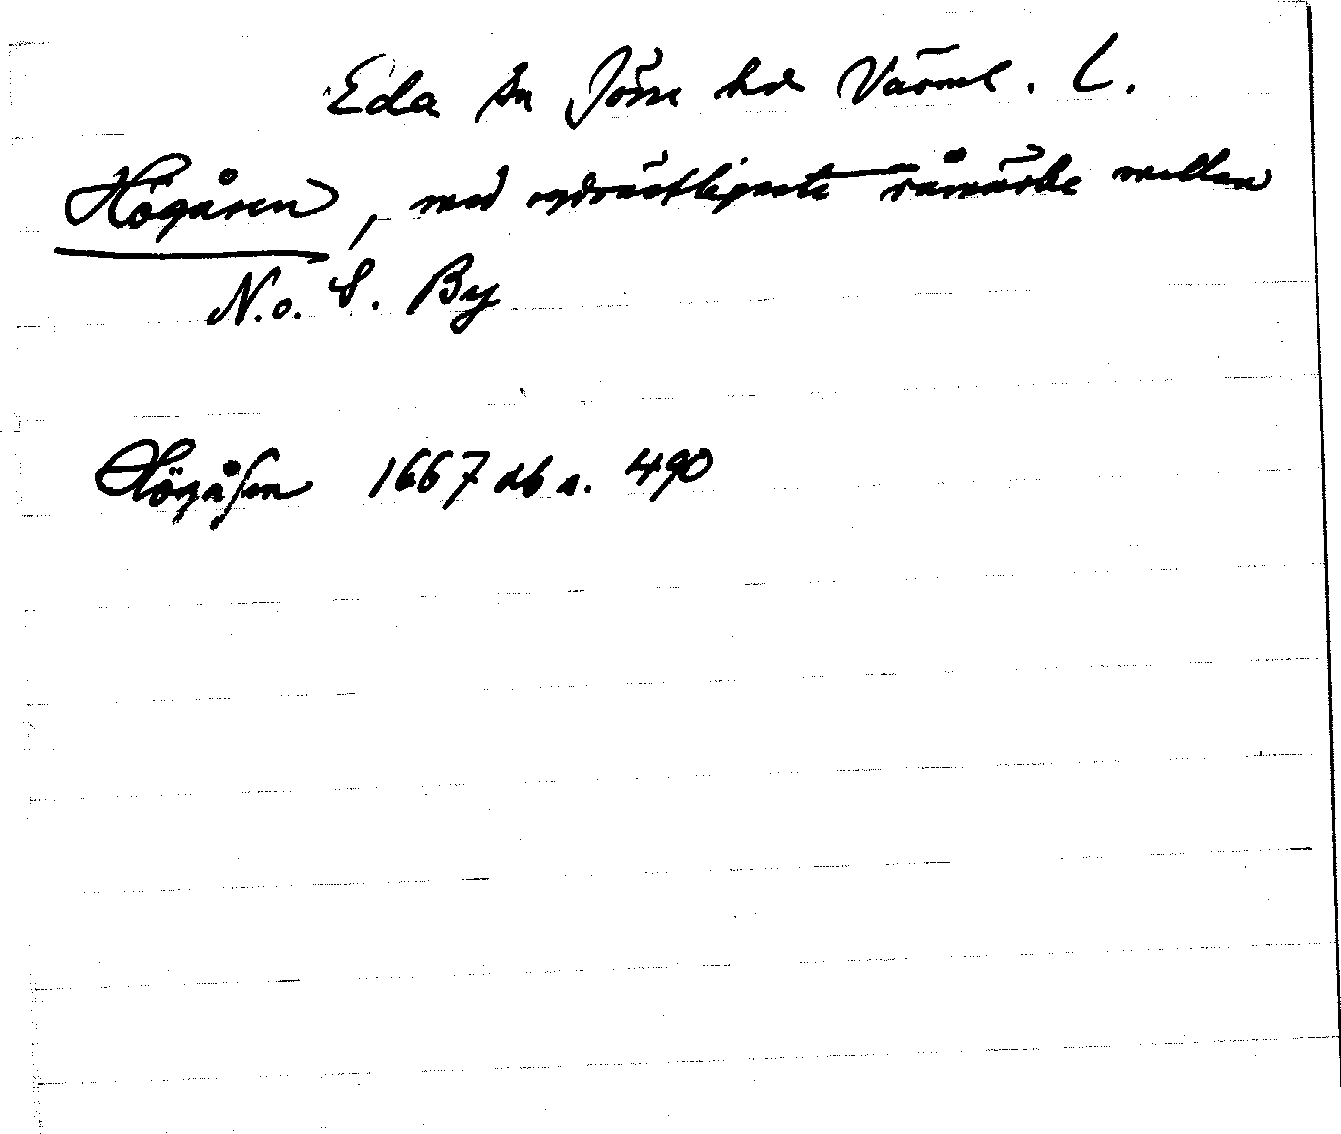 Eda sn Jösse hd Värml. L.
Högåsen, med sydvästligaste råmärke mellan
N. o. S. By
Högåsen 1667 db s. 490